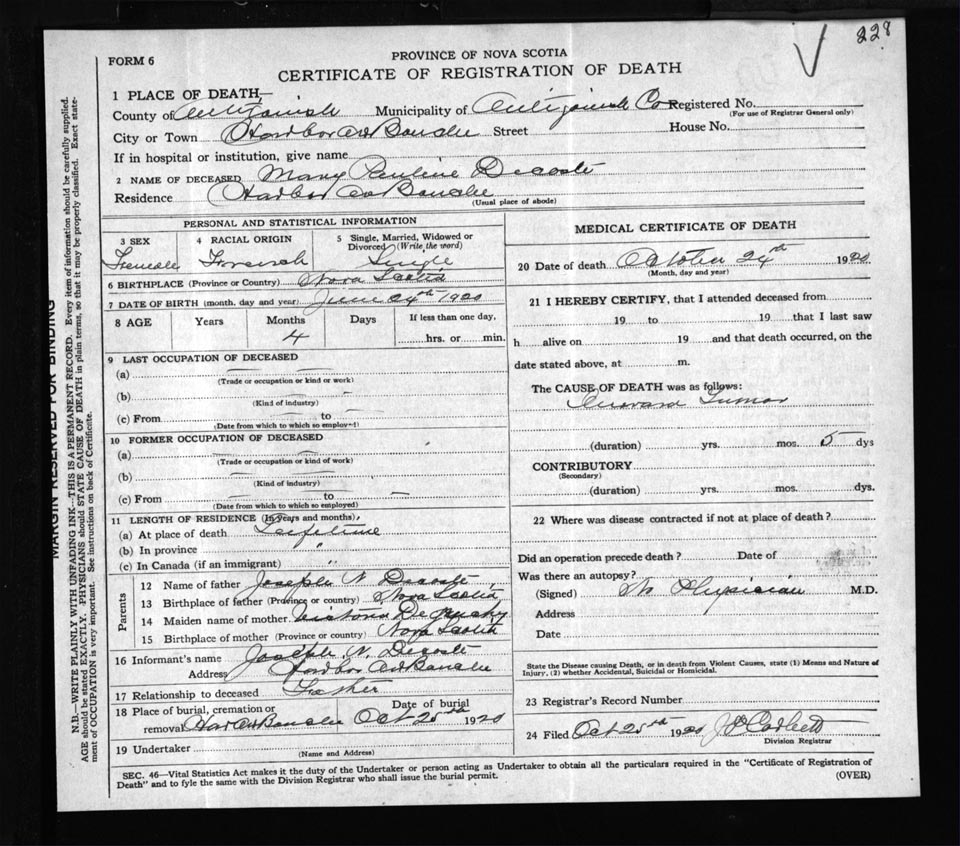 228
PROVINCE OF NOVA SCOTIA
FORM 6
CERTIFICATE OF REGISTRATION OF DEATH
1 PLACE OF DEATH—
County of Antigonish Municipality of Antigonish Co Registered No.
(For use of Registrar General only)
City or Town Harbor Au Bouche Street House No.
If in hospital or institution, give name
2 NAME OF DECEASED Mary Pauline Decoste
Residence Harbor Au Bouche
(Usual place of abode)
PERSONAL AND STATISTICAL INFORMATION
3 SEX 4 RACIAL ORIGIN 5 Single, Married, Widowed or Divorced (Write the word)
Female French Single
6 BIRTHPLACE (Province or Country) Nova Scotia
7 DATE OF BIRTH (month, day and year) June 24th 1920
8 AGE Years Months Days If less than one day,
4 hrs. or min.
9 LAST OCCUPATION OF DECEASED
(a)
(Trade or occupation or kind or work)
(b)
(Kind of industry)
(c) From to
(Date from which to which so employed)
10 FORMER OCCUPATION OF DECEASED
(a)
(Trade or occupation or kind of work)
(b)
(Kind of industry)
(c) From to
(Date from which to which so employed)
11 LENGTH OF RESIDENCE (In years and months),
(a) At place of death Lifetime
(b) In province "
(c) In Canada (if an immigrant)
Parents
12 Name of father Joseph N Decoste
13 Birthplace of father (Province or country) Nova Scotia
14 Maiden name of mother Victoria
15 Birthplace of mother (Province or country) Nova Scotia
16 Informant's name Joseph N. Decoste
Address Harbor Au Bouche
17 Relationship to deceased Father
18 Place of burial, cremation or Date of burial
removal Har Au Bouche Oct 25th 1920
19 Undertaker
(Name and Address)
MEDICAL CERTIFICATE OF DEATH
20 Date of death October 24th 1920
(Month, day and year)
21 I HEREBY CERTIFY, that I attended deceased from
19 to 19 that I last saw
h alive on 19 and that death occurred, on the
date stated above, at m.
The CAUSE OF DEATH was as follows:
Tumor
(duration) yrs. mos. 5 dys
CONTRIBUTORY
(Secondary)
(duration) yrs. mos. dys.
22 Where was disease contracted if not at place of death?
Did an operation precede death? Date of
Was there an autopsy?
(Signed) No Physician M.D.
Address
Date
State the Disease causing Death, or in death from Violent Causes, state (1) Means and Nature of
Injury, (2) whether Accidental, Suicidal or Homicidal.
23 Registrar's Record Number
24 Filed Oct 25th 1920
Division Registrar
SEC. 46—Vital Statistics Act makes it the duty of the Undertaker or person acting as Undertaker to obtain all the particulars required in the "Certificate of Registration of
Death" and to fyle the same with the Division Registrar who shall issue the burial permit.
(OVER)
MARGIN RESERVED FOR BINDING
N.B.—WRITE PLAINLY WITH UNFADING INK—THIS IS A PERMANENT RECORD. Every item of information should be carefully supplied.
AGE should be stated EXACTLY. PHYSICIANS should STATE CAUSE OF DEATH in plain terms, so that it may be properly classified. Exact state-
ment of OCCUPATION is very important. See instructions on back of Certificate.